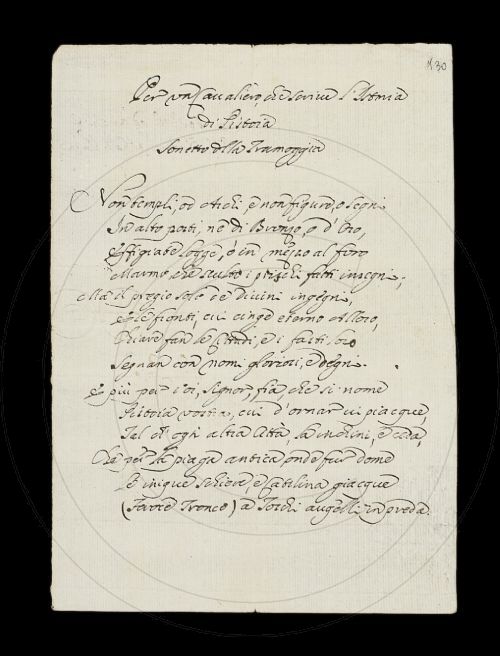 30
Per un Cavaliero, che scrive l'Istoria
di Pistoia
Sonetto della Tramoggia
Non templi, od archi, e non figure, o segni
In alto posti, ne di Bronzo, o d'Oro,
Effigiate logge, o in mezzo al foro
Marmo, che sculto i prischi fatti insegni;
Ma il pregio solo è de Divini ingegni,
E le fronti, cui cinge eterno Alloro,
Chiare fan le Cittadi, e i fasti loro
Segnan con nomi gloriosi, e degni.
E più per voi, Signor, fia che si nome
Pistoia vostra, cui d'ornar vi piacque,
Tal ch'ogn'altra Città, s'inchini, e ceda,
Che per la piaga antica onde fur dome
Le inique schiere, e Catilina giacque
(Feroce Tronco) a Toschi augelli in preda.